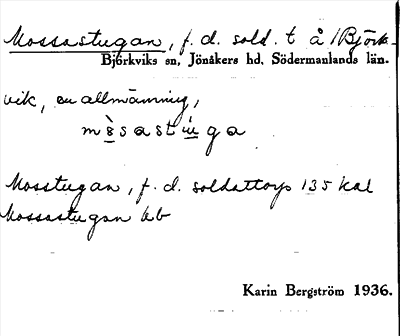 Mossastugan, f. d. sold. t å / Björk-
Björkviks sn, Jönåkers hd, Södermanlands län.
vik, en allmänning,
Mosstugan, f. d. soldattorp 135 Kal
Mossastugan kb
Karin Bergström 1936.